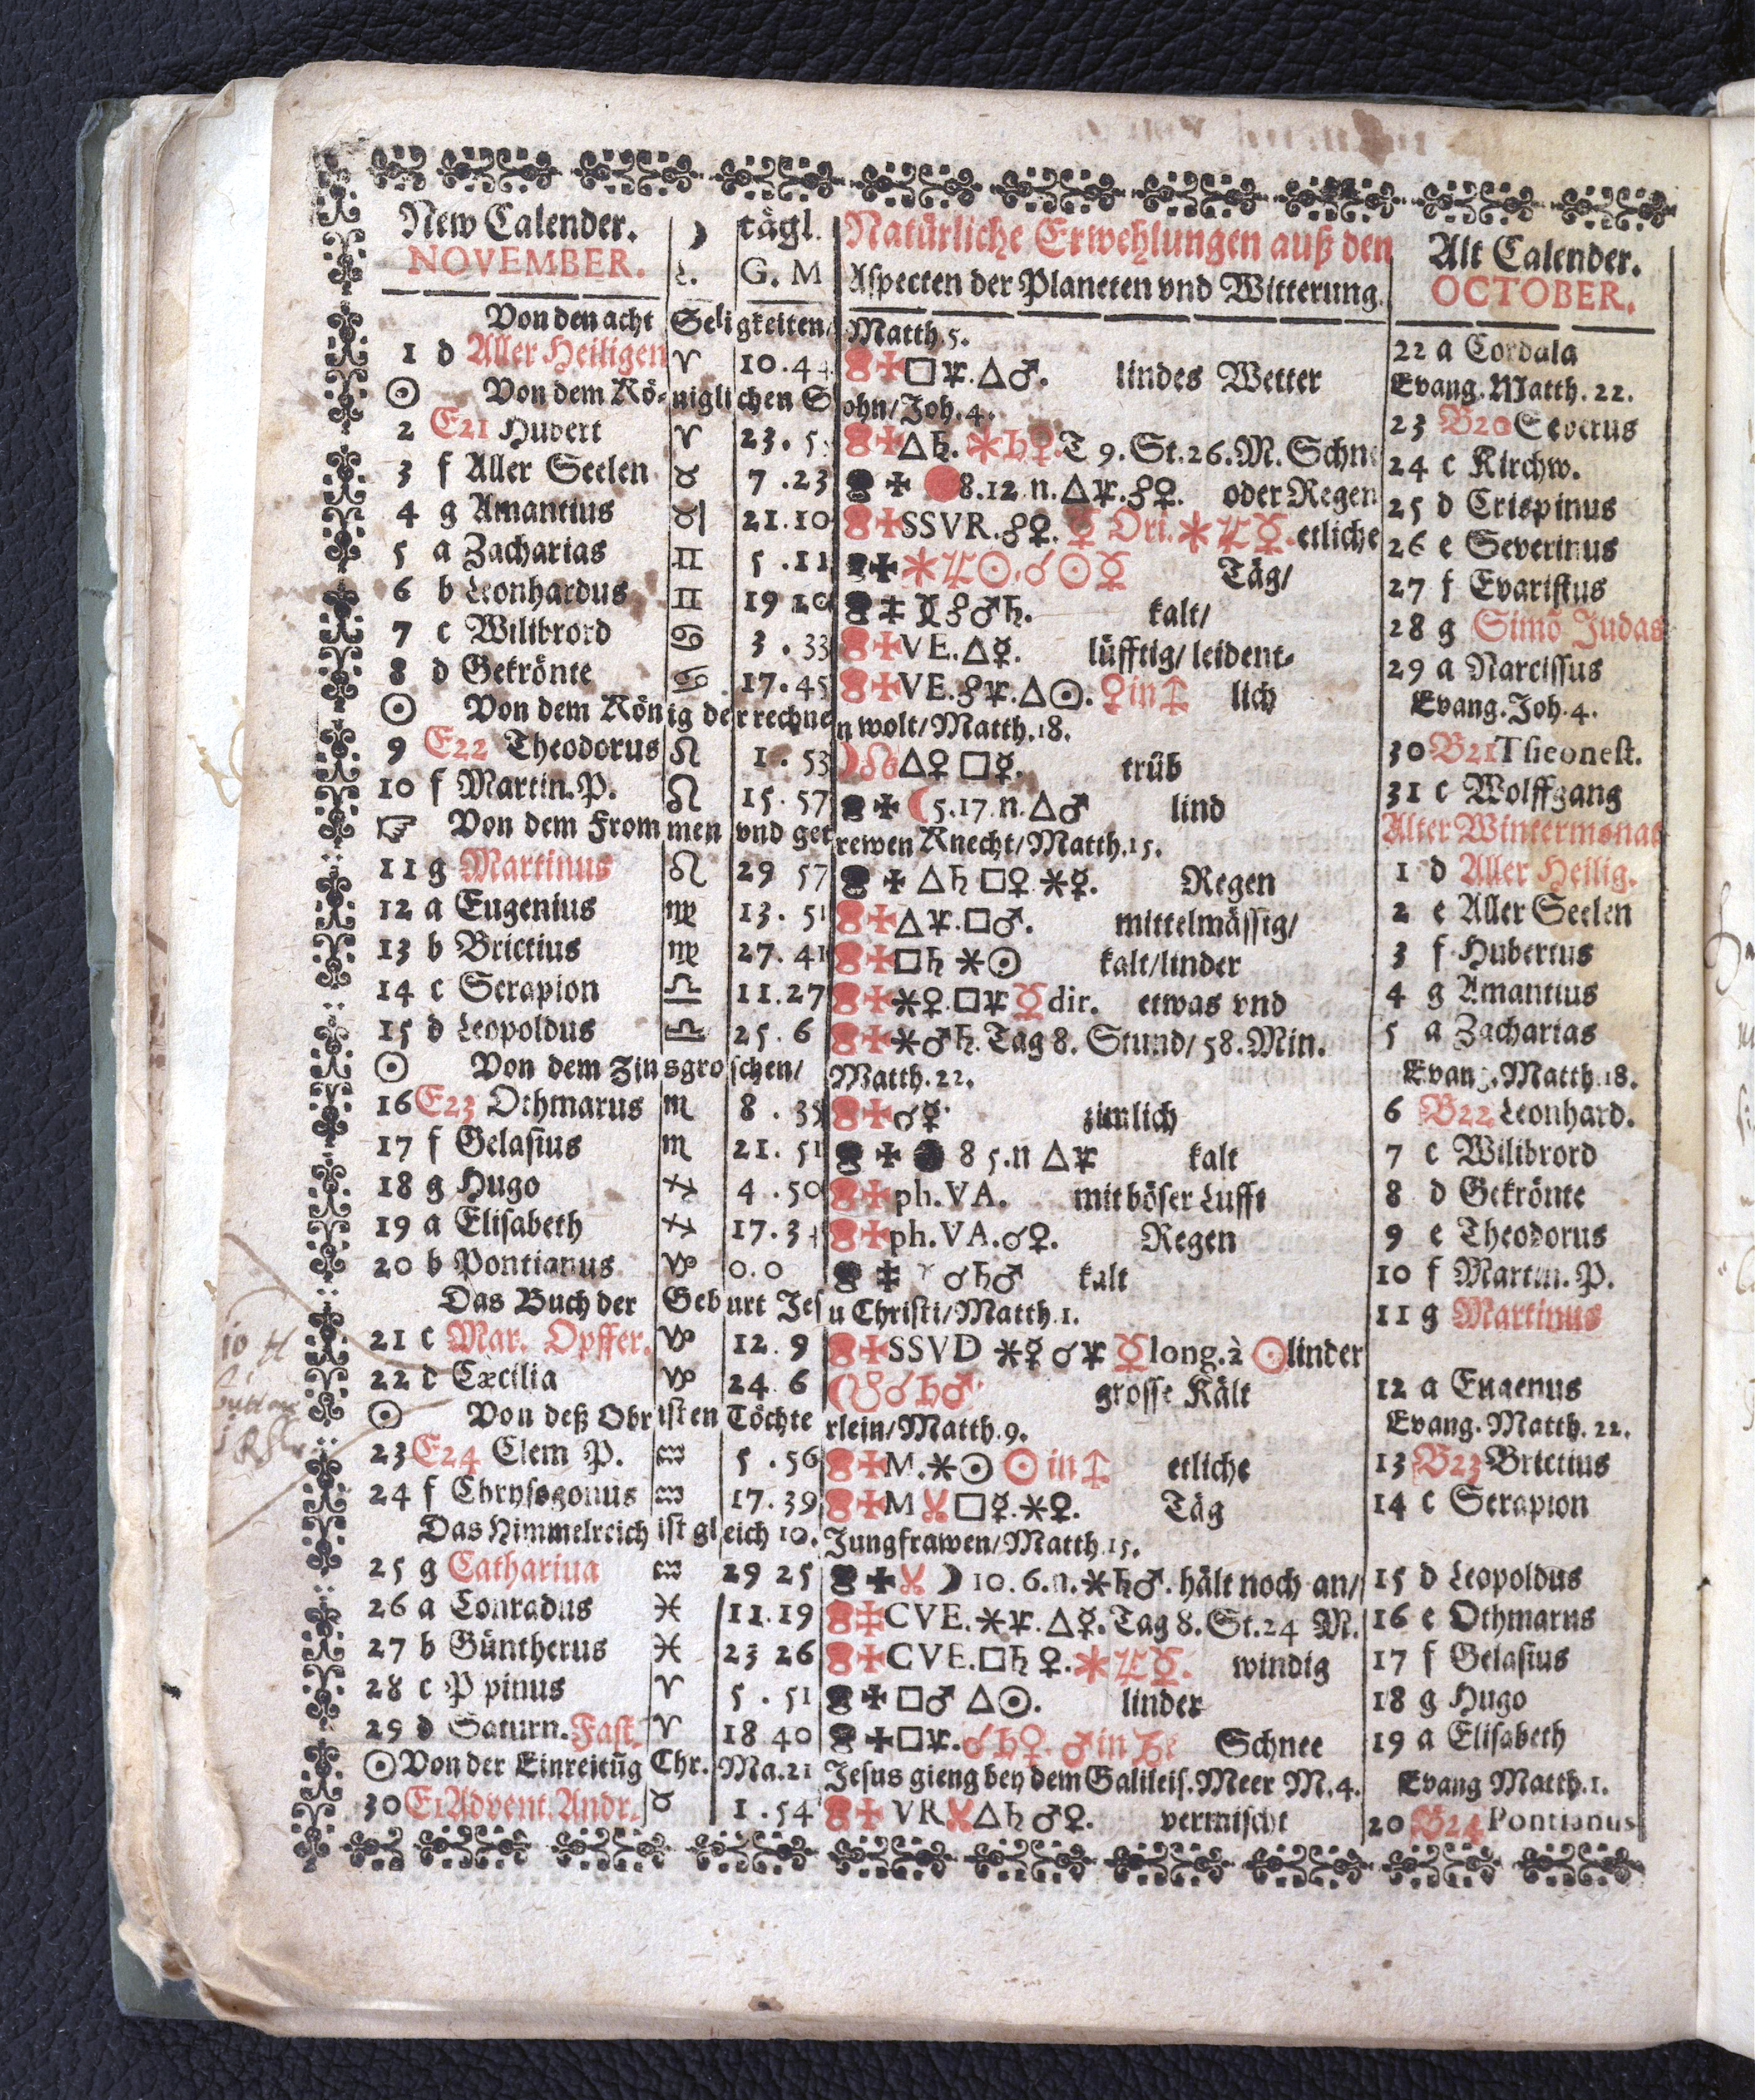 New Calender. ☽ tägl. Natürliche Erwehlungen auß den Alt Calender.
NOVEMBER. l. G. M Aspecten der Planeten vnd Witterung. OCTOBER.
Von den acht Seligkeiten/ Matth. 5.
1 d Aller Heiligen ♈ 10.44 □ ♃. △ ♂. lindes Wetter 22 a Cordula
☉ Von dem Königlichen Sohn/ Joh. 4. Evang. Matth. 22.
2 E21 Hubert ♈ 23. 5 △ ♄. ⚹ ♄ ♀. T 9. St. 26. M. Schne 23 B20 Severus
3 f Aller Seelen ♉ 7 .23 8.12 n. △ ♃. ☍ ♀. oder Regen 24 c Kirchw.
4 g Amantius ♉ 21.10 SSVR. ☍ ♀. ☿ Ori. ⚹ ♃ ☿. etliche 25 d Crispinus
5 a Zacharias ♊ 5 .11 ⚹ ♃ ☉. ☌ ☉ ☿ Täg/ 26 e Severinus
6 b Leonhardus ♊ 19 20 ☍ ♂ ♄. kalt/ 27 f Evaristus
7 c Wilibrord ♋ 3 . 33 VE. △ ☿. lüfftig/ leident- 28 g Simō Judas
8 d Gekrönte ♋ 17.45 VE. ☍ ♃. △ ☉. ♀ in ♐ lich 29 a Narcissus
☉ Von dem König der rechnen wolt/ Matth. 18. Evang. Joh. 4.
9 E22 Theodorus ♌ 1 . 53 ☽ ☊ △ ♀ □ ☿. trüb 30 B21 Theonest.
10 f Martin. P. ♌ 15. 57 ☾ 5.17. n. △ ♂ lind 31 c Wolffgang
☞ Von dem Frommen vnd getrewen Knecht/ Matth. 15. Alter Wintermonat
11 g Martinus ♌ 29 57 △ ♄ □ ♀ ⚹ ☿. Regen 1 d Aller Heilig.
12 a Eugenius ♍ 13. 51 △ ♃. □ ♂. mittelmässig/ 2 e Aller Seelen
13 b Brictius ♍ 27. 41 □ ♄ ⚹ ☉ kalt/linder 3 f Hubertus
14 c Serapion ♎ 11.27 ⚹ ♀. □ ♃ ☿ dir. etwas vnd 4 g Amantius
15 d Leopoldus ♎ 25. 6 ⚹ ♂ ♄. Tag 8. Stund/ 58. Min. 5 a Zacharias
☉ Von dem Zinsgroschen/ Matth. 22. Evang. Matth. 18.
16 E23 Othmarus ♏ 8 . 35 ☌ ☿. zimlich 6 B22 Leonhard.
17 f Gelasius ♏ 21. 51 8 5. n △ ♃ kalt 7 c Wilibrord
18 g Hugo ♐ 4 .50 ph. VA. mit böser Lufft 8 d Gekrönte
19 a Elisabeth ♐ 17.3 ph. VA. ☌ ♀. Regen 9 e Theodorus
20 b Pontianus ♑ 0. 0 ☌ ♄ ♂ kalt 10 f Martin. P.
Das Buch der Geburt Jesu Christi/ Matth. 1. 11 g Martinus
21 c Mar. Opffer. ♑ 12. 9 SSVD ⚹ ☿ ☌ ♃ ☿ long. à ☉ linder
22 d Cæcilia ♑ 24 6 ☾ ☋ ☌ ♄ ♂ grosse Kält 12 a Eugenus
☉ Von deß Obristen Töchterlein/ Matth. 9. Evang. Matth. 22.
23 E24 Clem P. ♒ 5 .56 M. ⚹ ☉ ☉ in ♐ etliche 13 B23 Brictius
24 f Chrysogonus ♒ 17.39 M □ ☿. ⚹ ♀. Täg 14 c Serapion
Das Himmelreich ist gleich 10. Jungfrawen/ Matth. 15.
25 g Catharina ♒ 29 25 ☽ 10. 6. n. ⚹ ♄ ♂. hält noch an/ 15 d Leopoldus
26 a Conradus ♓ 11.19 CVE. ⚹ ♃. △ ☿. Tag 8. St. 24 M. 16 e Othmarus
27 b Güntherus ♓ 23 26 CVE. □ ♄ ♀. ⚹ ♃ ☿. windig 17 f Gelasius
28 c P pinus ♈ 5 . 51 □ ♂ △ ☉. linder 18 g Hugo
29 d Saturn. Fast. ♈ 18 40 □ ♃. ☌ ♄ ♀. ♂ in Schnee 19 a Elisabeth
☉ Von der Einreitūg Chr. Ma. 21 Jesus gieng bey dem Galileis. Meer M. 4. Evang Matth. 1.
30 E1 Advent. Andr. ♉ 1 .54 VR △ ♄ ♂ ♀. vermischt 20 B24 Pontianus